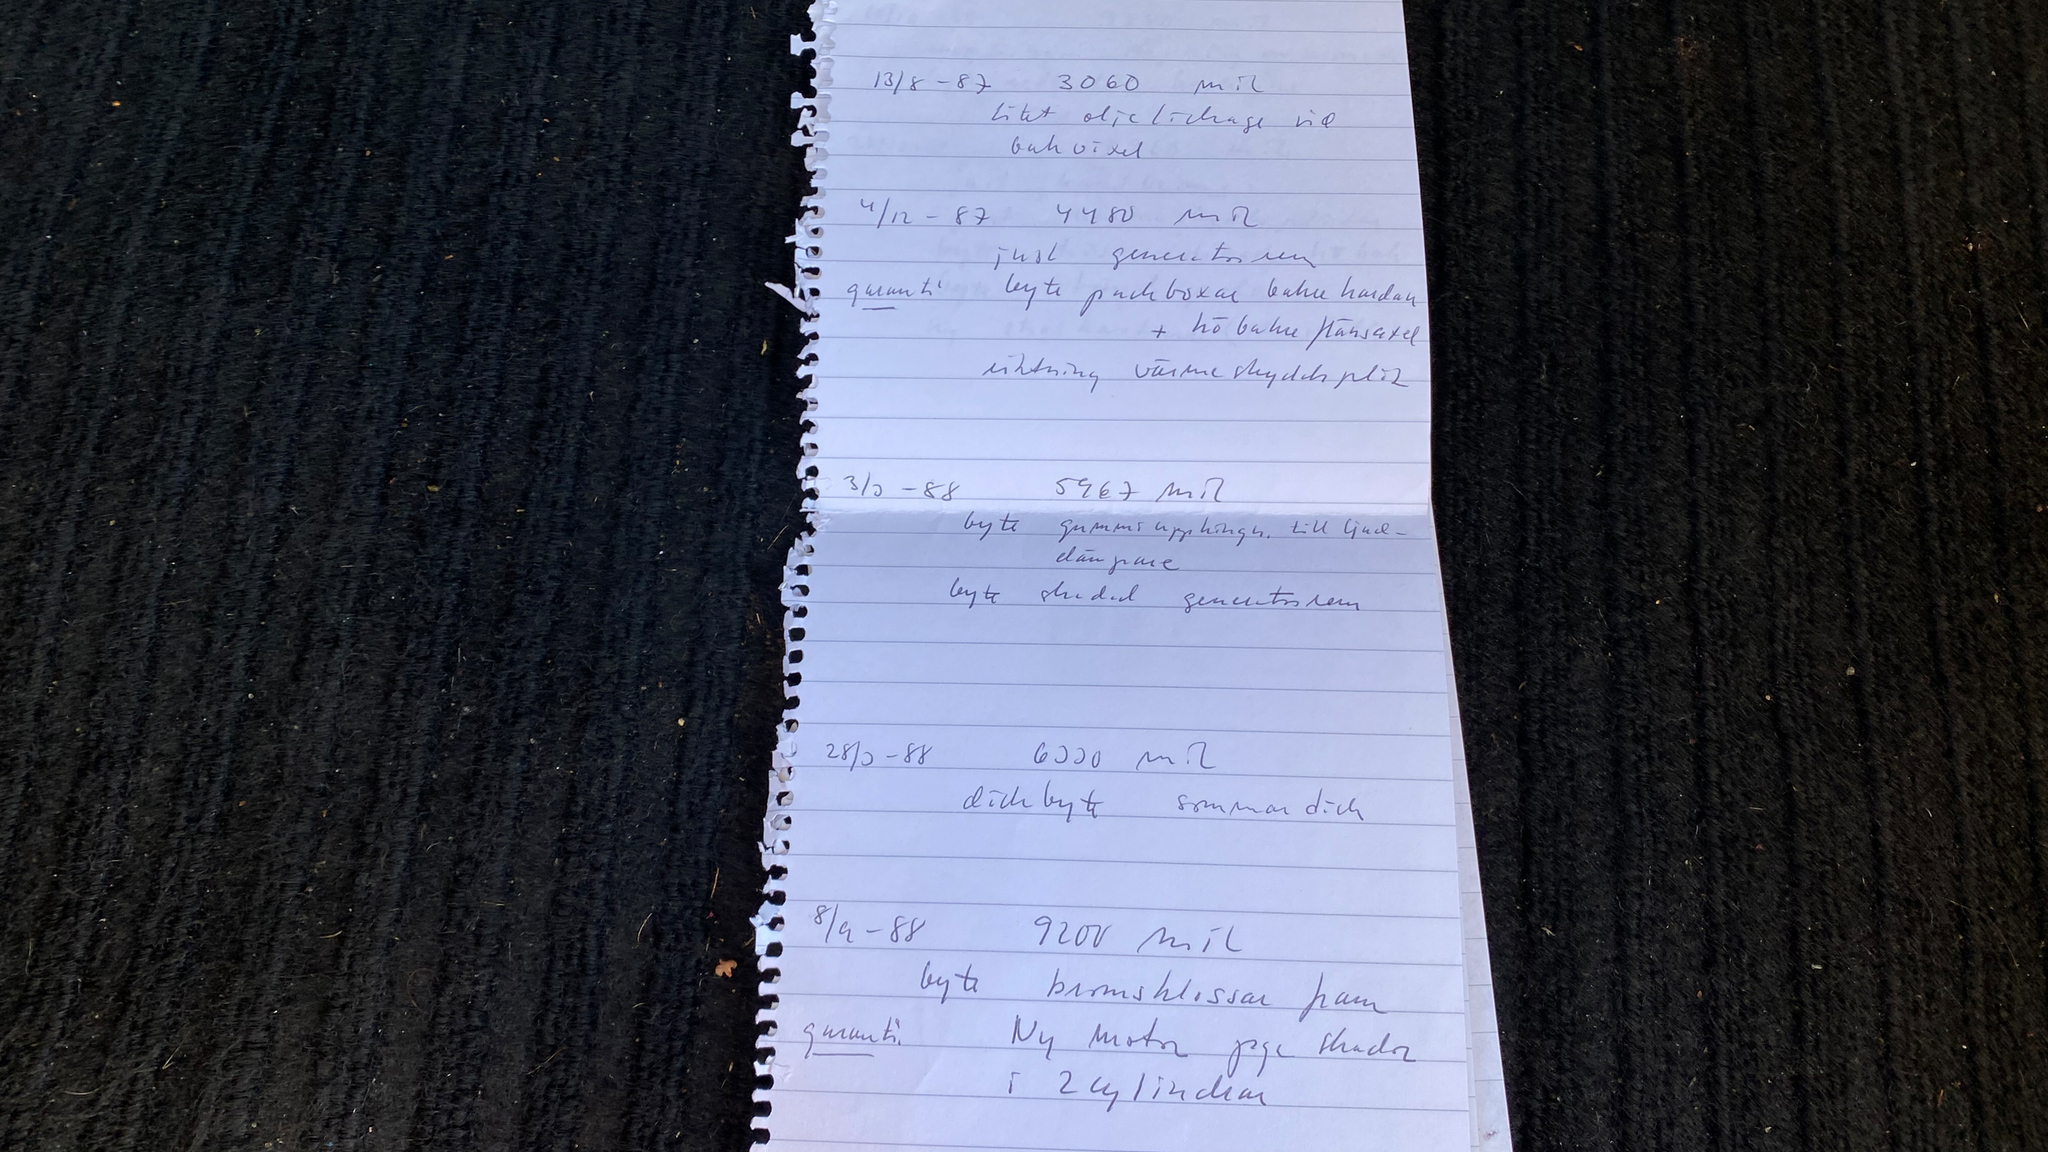 13/8 - 87 3060 mil
litet oljeläckage vid
bakväxel
4/12 - 87 4480 mil
just generatorrem
garanti byte packboxar bakre kardan
+ hö bakre flänsaxel
riktning värmeskyddsplåt
3/3 - 88 5967 mil
byte gummiupphängn. till ljud-
dämpare
byte skadad generatorrem
28/3 - 88 6330 mil
däckbyte sommardäck
8/9 - 88 9200 mil
byte bromsklossar fram
garanti Ny motor pga skador
i 2 cylindrar